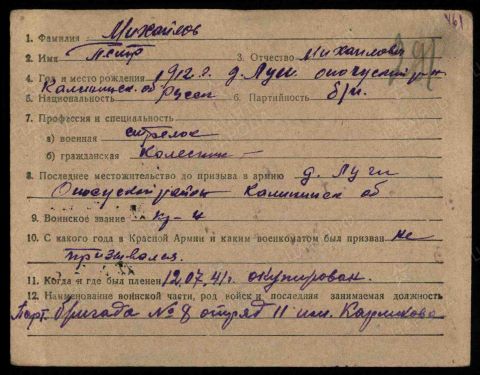 461
1. Фамилия Михайлов
2. Имя Петр 3. Отчество Михайлович
4. Год и место рождения 1912 г. д. Луги Опочуский р-н
Калининск. об
5. Национальность Русск 6. Партийность б/п.
7. Профессия и специальность
а) военная стрелок
б) гражданская Колесник
8. Последнее местожительство до призыва в армию д. Луги
Опочуский район Калининск об
9. Воинское звание к-ц
10. С какого года в Красной Армии и каким военкоматом был призван не
призывался.
11. Когда и где был пленен 12.07.41г. окупирован.
12. Наименование воинской части, род войск и последняя занимаемая должность
Парт. бригада № 8 отряд 11 им.